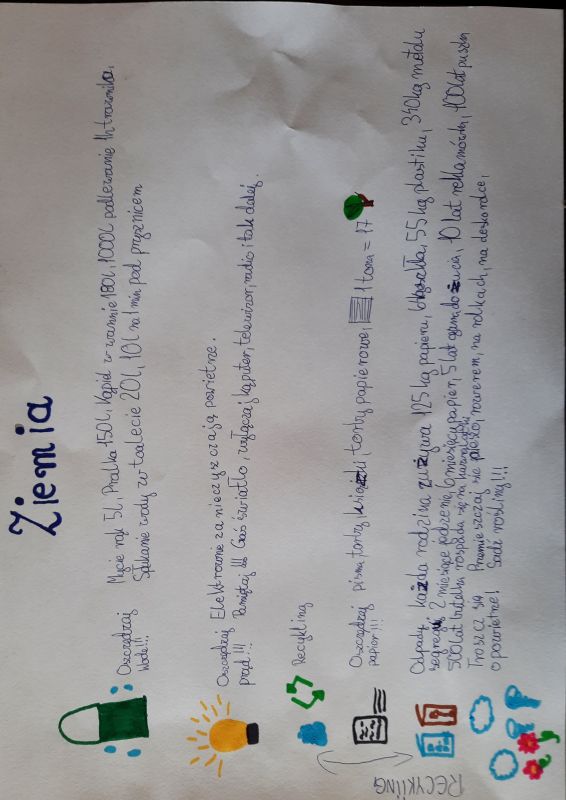 Ziemia
Oszczędzaj Mycie rąk 5l, Pralka 150l, Kąpiel w wannie 180l, 1000l podlewanie 1h trawnika,
Wodę!!! Spłukanie wody w toalecie 20l, 10l na 1 min pod prysznicem
Oszczędzaj Elektrownie zanieczyszczają powietrze.
prąd!!! Pamiętaj!!! Gaś światło, wyłączaj kąputer, telewizor, radio i tak dalej.
Recykling
Oszczędzaj pisma, torby, książki, torby papierowe, 1 tona = 17
papier!!!
RECYKLING
Odpady każda rodzina zużywa 125 kg papieru, szkła, 55 kg plastiku, 340 kg metalu
segreguj 2 miesiące jedzenie, 6 miesięcy papier, 5 lat guma do żucia, 10 lat reklamówka, 100 lat puszka
500 lat butelka rozpada się na kawałeczki
Troszcz się Przemieszczaj się pieszo, rowerem, na rolkach, na deskorolce,
o powietrze! Sadź rośliny!!!